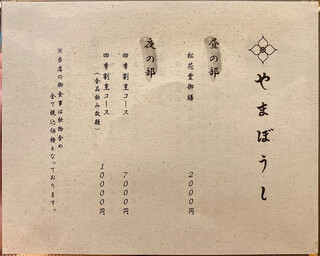 やまぼうし
昼の部
松花堂御膳 2000円
夜の部
四季割烹コース 7000円
四季割烹コース 10000円
(全品飲み放題)
※当店の御食事は飲物含め
全て税込価格となっております。